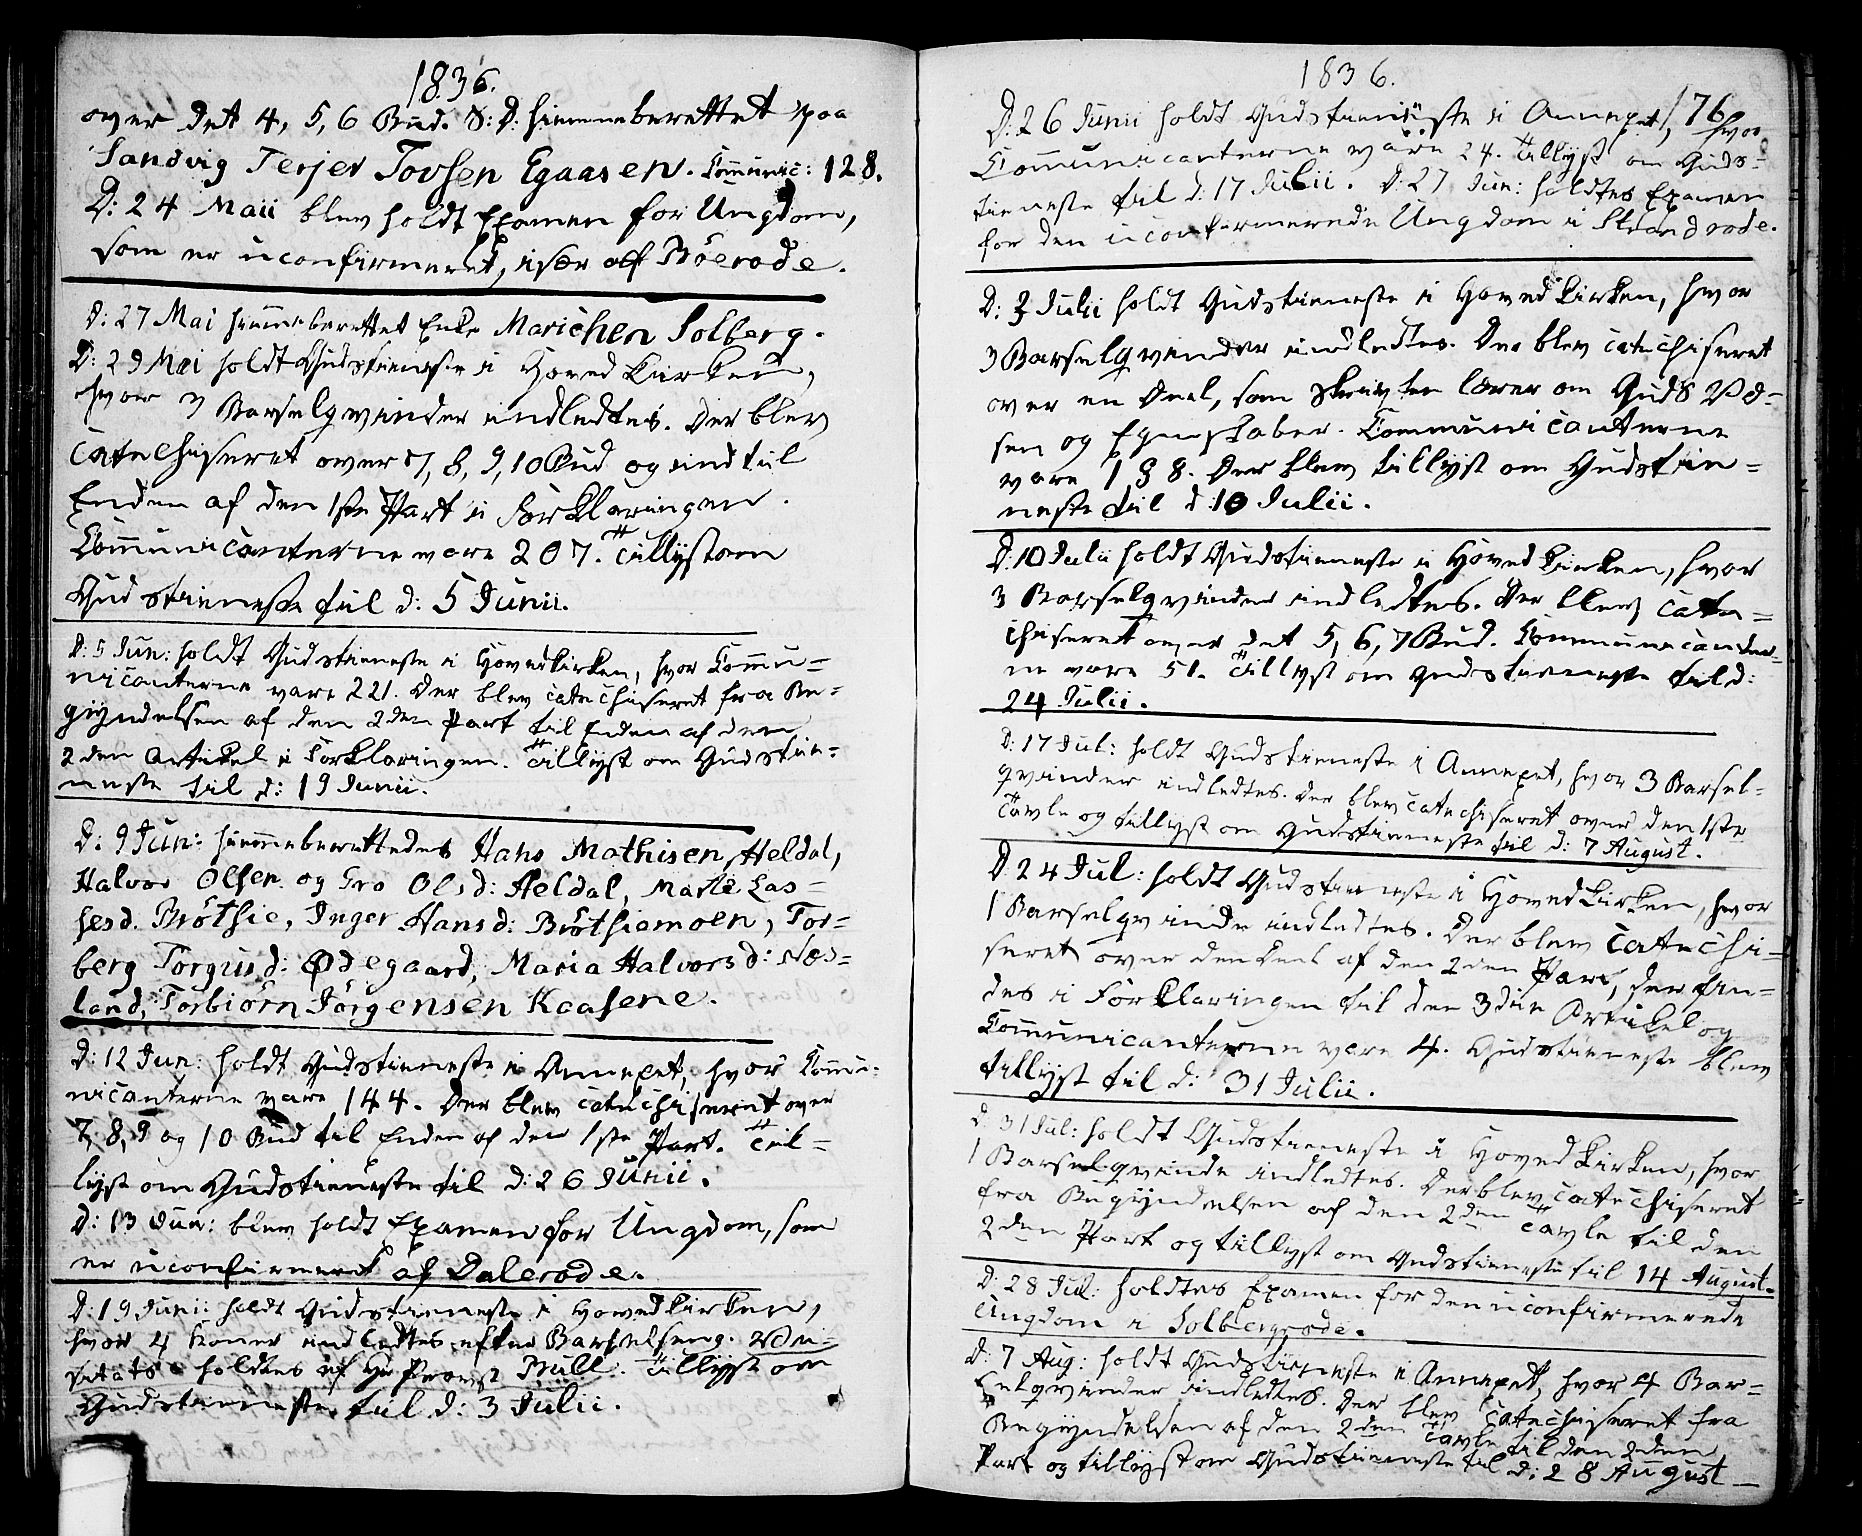 1836.
over det 4, 5, 6 Bud. S: D: hiemmeberettet paa
Sandvig Terjer Tovsen Egaasen. Comunic: 128.
D: 24 Maii blev holdt Examen for Ungdom,
som er uconfirmeret, især af Böerode.
D: 27 Mai hiemmeberettet Enke Marichen Solberg.
D: 29 Mai holdt Gudstieneste i Hovedkirken,
hvor 3 Barselqvinder indledtes. Der blev
catechiseret over 7, 8, 9, 10 Bud og indtil
Enden af den 1ste Part i Forklaringen.
Communicanterne vare 207. Tillyst om
Gudstieneste til d: 5 Junii.
D: 5 Jun: holdt Gudstieneste i Hovedkirken, hvor Commu=
nicanterne vare 221. Der blev catechiseret fra Be=
gyndelsen af den 2den Part til Enden af den
2den Artikel i Forklaringen. Tillyst om Gudstie=
neste til d: 19 Junii.
D: 9 Jun: hiemmeberettedes Hans Mathisen Heldal,
Halvor Olsen og Gro Olsd: Heldal, Marte Las=
sesd. Bröthie, Inger Hansd: Bröthiemoen, Tor=
berg Torgusd: Ødegaard, Maria Halvorsd: Næs=
land, Torbiörn Jörgensen Kaasene.
D: 12 Jun: holdt Gudstieneste i Annexet, hvor Commu=
nicanterne vare 144. Der blev catechiseret over
7, 8, 9 og 10 Bud til Enden af den 1ste Part. Til=
lyst om Gudstieneste til d: 26 Junii.
D: 13 Jun: blev holdt Examen for Ungdom, som
er uconfirmeret af Dalerode.
D: 19 Junii holdt Gudstieneste i Hovedkirken,
hvor 4 Koner indledtes efter Barselseng. Vi=
sitats holdtes af Hr Provst Bull. Tillyst om
Gudstieneste til d: 3 Julii.
1836.
176
D: 26 Junii holdt Gudstieneste i Annexet, hvor
Communicanterne vare 24. Tillyst om Guds=
tieneste til d: 17 Julii. D: 27 Jun: holdtes Examen
for den uconfirmerede Ungdom i Strandrode.
D: 3 Julii holdt Gudstieneste i Hovedkirken, hvor
3 Barselqvinder indledtes. Der blev catechiseret
over en Deel, som Skriften lærer om Guds Væ=
sen og Egenskaber. Communicanterne
vare 198. Der blev tillyst om Gudstie=
neste til d: 10 Julii.
D: 10 Julii holdt Gudstieneste i Hovedkirken, hvor
3 Barselqvinder indledtes. Der blev cate=
chiseret over det 5, 6, 7 Bud. Communicanter=
ne vare 51. Tillyst om Gudstieneste til d:
24 Julii.
D: 17 Jul: holdt Gudstieneste i Annexet, hvor 3 Barsel=
qvinder indledtes. Der blev catechiseret over den 1ste
Tavle og tillyst om Gudstieneste til d: 7 August.
D: 24 Jul: holdt Gudstieneste i Hovedkirken, hvor
1 Barselqvinde indledtes. Der blev catechi=
seret over den Deel af den 2den Part, der fin=
des i Forklaringen til den 3die Artikel og
Communicanterne vare 4. Gudstieneste blev
tillyst til d: 31 Julii.
D: 31 Jul: holdt Gudstieneste i Hovedkirken, hvor
1 Barselqvinde indledtes. Der blev catechiseret
fra Begyndelsen af den 2den Tavle til den
2den Part og tillyst om Gudstieneste til 14 August.
D: 28 Jul: holdtes Examen for den uconfirmerede
Ungdom i Solbergrode.
D: 7 Aug: holdt Gudstieneste i Annexet, hvor 4 Bar=
selqvinder indledtes. Der blev catechiseret fra
Begyndelsen af den 2den Tavle til den 2den
Part og tillyst om Gudstieneste til d: 28 August